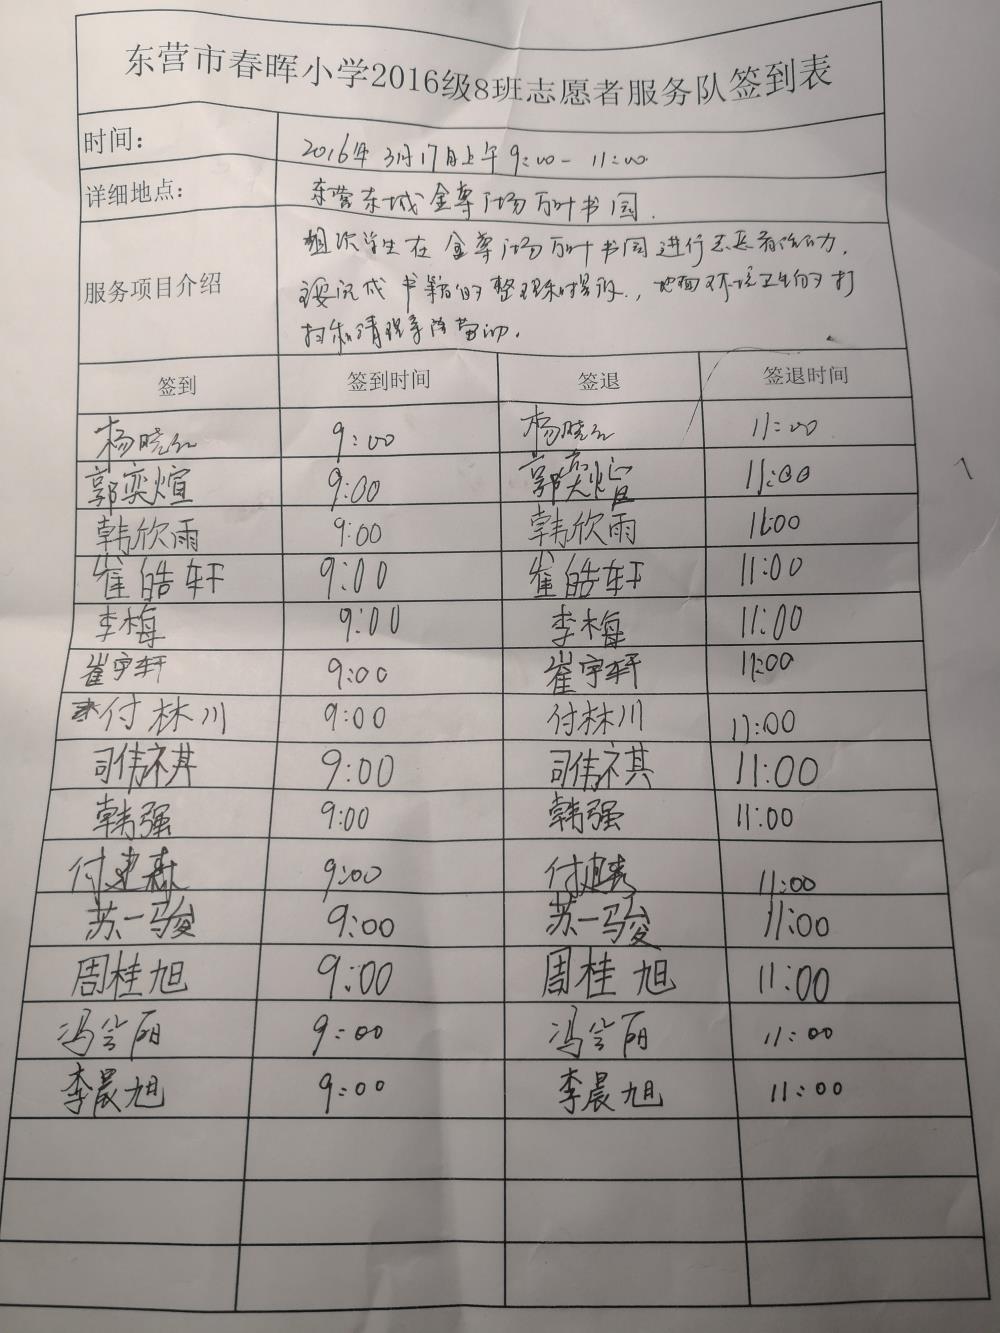 东营市春晖小学2016级8班志愿者服务队签到表
时间: 2016年3月17日上午9:00-11:00
详细地点: 东营东城金尊广场万叶书园.
服务项目介绍
组织学生在金尊广场万叶书园进行志愿者活动,
主要完成书籍的整理和摆放,地面环境卫生的打
扫和清理等 劳动.
签到 签到时间 签退 签退时间
杨晓 9:00 杨晓 11:00
郭奕煊 9:00 郭奕煊 11:00
韩欣雨 9:00 韩欣雨 11:00
崔皓轩 9:00 崔皓轩 11:00
李梅 9:00 李梅 11:00
崔宇轩 9:00 崔宇轩 11:00
付林川 9:00 付林川 11:00
司伟祺 9:00 司伟祺 11:00
韩强 9:00 韩强 11:00
付建森 9:00 付建 11:00
苏一骏 9:00 苏一骏 11:00
周桂旭 9:00 周桂旭 11:00
冯 丽 9:00 冯 丽 11:00
李晨旭 9:00 李晨旭 11:00